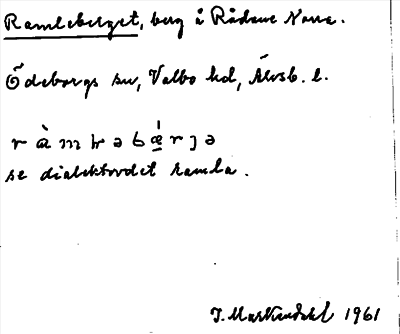 Ramleberget, berg å Rådane Norra.
Ödeborgs sn, Valbo hd, Älvsb. l.
r à m ɫ ə b ǽ r ȷ ə
se dialektordet ramla.
1961